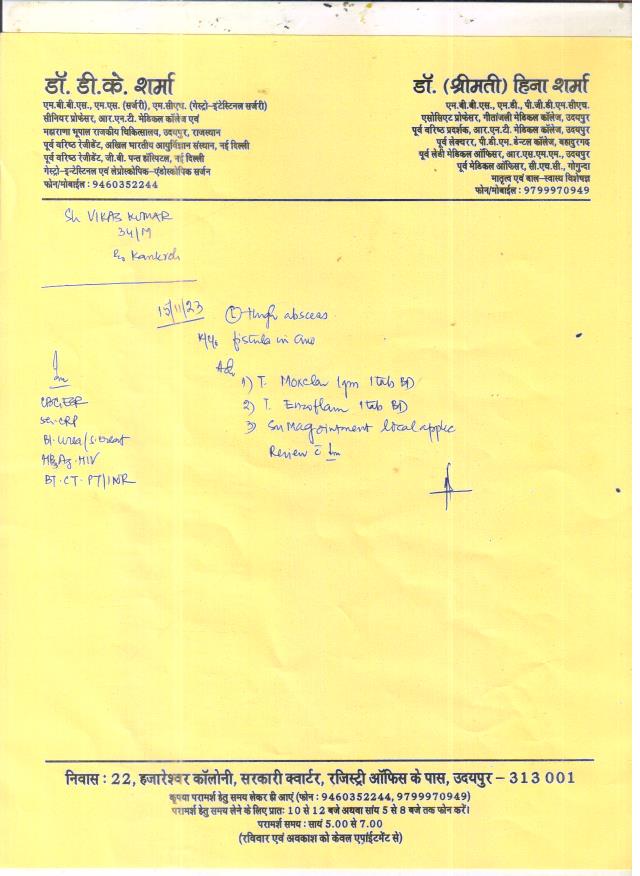 डॉ. डी.के. शर्मा
एम.बी.बी.एस., एम.एस. (सर्जरी), एम.सीएच. (गेस्ट्रो-इंटेस्टिनल सर्जरी)
सीनियर प्रोफेसर, आर.एन.टी. मेडिकल कॉलेज एवं
महाराणा भूपाल राजकीय चिकित्सालय, उदयपुर, राजस्थान
पूर्व वरिष्ठ रेजीडेंट, अखिल भारतीय आयुर्विज्ञान संस्थान, नई दिल्ली
पूर्व वरिष्ठ रेजीडेंट, जी.बी. पन्त हॉस्पिटल, नई दिल्ली
गेस्ट्रो-इन्टेस्टिनल एवं लेप्रोस्कोपिक-एंडोस्कोपिक सर्जन
फोन/मोबाईल : 9460352244
डॉ. (श्रीमती) हिना शर्मा
एम.बी.बी.एस., एम.डी., पी.जी.डी.एम.सीएच.
एसोसिएट प्रोफेसर, गीतांजली मेडिकल कॉलेज, उदयपुर
पूर्व वरिष्ठ प्रदर्शक, आर.एन.टी. मेडिकल कॉलेज, उदयपुर
पूर्व लेक्चरर, पी.डी.एम. डेन्टल कॉलेज, बहादुरगढ़
पूर्व लेडी मेडिकल ऑफिसर, आर.एस.एम.एम., उदयपुर
पूर्व मेडिकल ऑफिसर, सी.एच.सी., गोगुन्दा
मातृत्व एवं बाल-स्वास्थ्य विशेषज्ञ
फोन/मोबाईल : 9799970949
Sh VIKAS KUMAR
34/M
R/o Kankroli
15/11/23 (L) thigh abscess.
K/C/o fistula in ano
Adv
1) T. Moxclav 1gm 1tab BD
2) T. Enzoflam 1tab BD
3) SuMag ointment local applic
Review c̄ Inv
Inv
CBC, ESR
Sr. CRP
Bl. Urea/S. Creat
HBsAg. HIV
BT. CT. PT/INR
निवास : 22, हजारेश्वर कॉलोनी, सरकारी क्वार्टर, रजिस्ट्री ऑफिस के पास, उदयपुर - 313 001
कृपया परामर्श हेतु समय लेकर ही आएं (फोन : 9460352244, 9799970949)
परामर्श हेतु समय लेने के लिए प्रात: 10 से 12 बजे अथवा सांय 5 से 8 बजे तक फोन करें।
परामर्श समय : सायं 5.00 से 7.00
(रविवार एवं अवकाश को केवल एपॉईंटमेंट से)